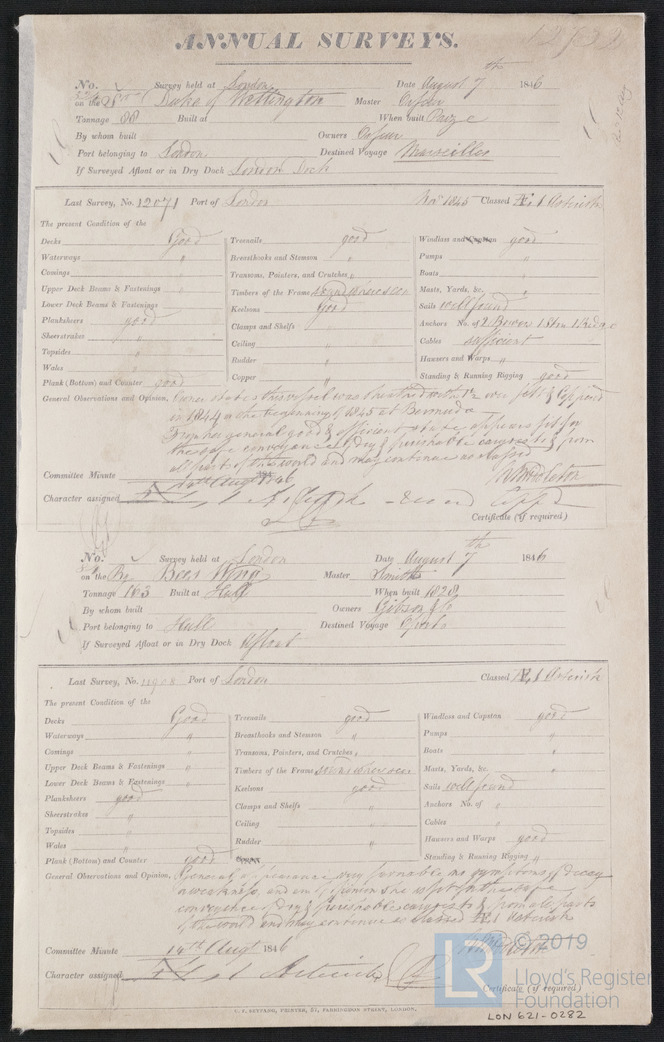 ANNUAL SURVEYS.
No. Survey held at London Date August 7th 1846
on the Duke of Wellington Master
Tannage 88 Built at When built Prize
By whom built Owners
Port belonging to London Destined Voyage Marseilles
If Surveyed Afloat or in Dry Dock London Dock
Last Survey, No. 12071 Port of London 1845 Classed Æ 1 Asterisk
The present Condition of the
Decks Good Treenails good Windlass and Capstan good
Waterways " Breasthooks and Stemson " Pumps "
Comings " Transoms, Pointers, and Crutches " Boats "
Upper Deck Beams & Fastenings " Timbers of the Frame sound where seen Masts, Yards, &c. "
Lower Deck Beams & Fastenings Keelsons Good Sails well found
Planksheers good Clamps and Shelfs " Anchors No. of 2 Bower 1 Stm 1 Kedge
Sheerstrakes " Ceiling " Cables sufficient
Topsides " Rudder " Hawsers and Warps "
Wales " Copper " Standing & Running Rigging good
Plank (Bottom) and Counter good
General Observations and Opinion, Owner states this vessel was sheathed with felt & Coppered
in 1844 or the beginning of 1845 at Bermuda
From her general good & efficient state appears fit for
the safe conveyance of dry & perishable cargoes to & from
all parts of the world and may continue as classed
Committee Minute 14th Augt 1846
Character assigned
Certificate (if required)
No. Survey held at London Date August 7th 1846
on the Bees Wing Master Smith
Tannage 163 Built at Hull When built 1828
By whom built Owners Gibson & Co
Port belonging to Hull Destined Voyage Oporto
If Surveyed Afloat or in Dry Dock Afloat
Last Survey, No. 11908 Port of London Classed Æ 1 Asterisk
The present Condition of the
Decks Good Treenails good Windlass and Capstan good
Waterways " Breasthooks and Stemson " Pumps "
Comings " Transoms, Pointers, and Crutches " Boats "
Upper Deck Beams & Fastenings " Timbers of the Frame sound where seen Masts, Yards, &c. "
Lower Deck Beams & Fastenings " Keelsons good Sails well found
Planksheers good Clamps and Shelfs " Anchors No. of "
Sheerstrakes " Ceiling " Cables "
Topsides " Rudder " Hawsers and Warps good
Wales " Standing & Running Rigging "
Plank (Bottom) and Counter good
General Observations and Opinion, General appearance very favorable, no symptoms of decay
or weakness, and in my opinion she is fit for the safe
conveyance of dry & perishable cargoes to & from all parts
of the world and may continue as classed Æ 1 Asterisk
Committee Minute 14th Augt 1846
Character assigned Æ 1 Asterisk
Certificate (if required)
© 2019
LR
Lloyd's Register
Foundation
LON 621-0282